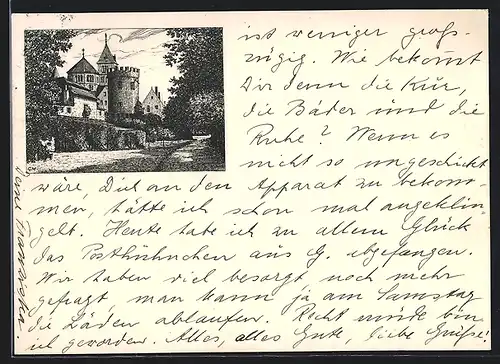 ist weniger groß-
zügig. Wie bekommt
Dir denn die Kur,
die Bäder und die
Ruhe? Wenn es
nicht so ungeschickt
wäre, Dich an den Apparat zu bekom-
men, hätte ich schon mal angeklin-
gelt. Heute habe ich zu allem Glück
das Posthühnchen aus G. abgefangen.
Wir haben viel besorgt, noch mehr
gefragt, man kann ja am Samstag
die Läden ablaufen. Recht müde bin
ich geworden. Alles, alles Gute, liebe Grüße!